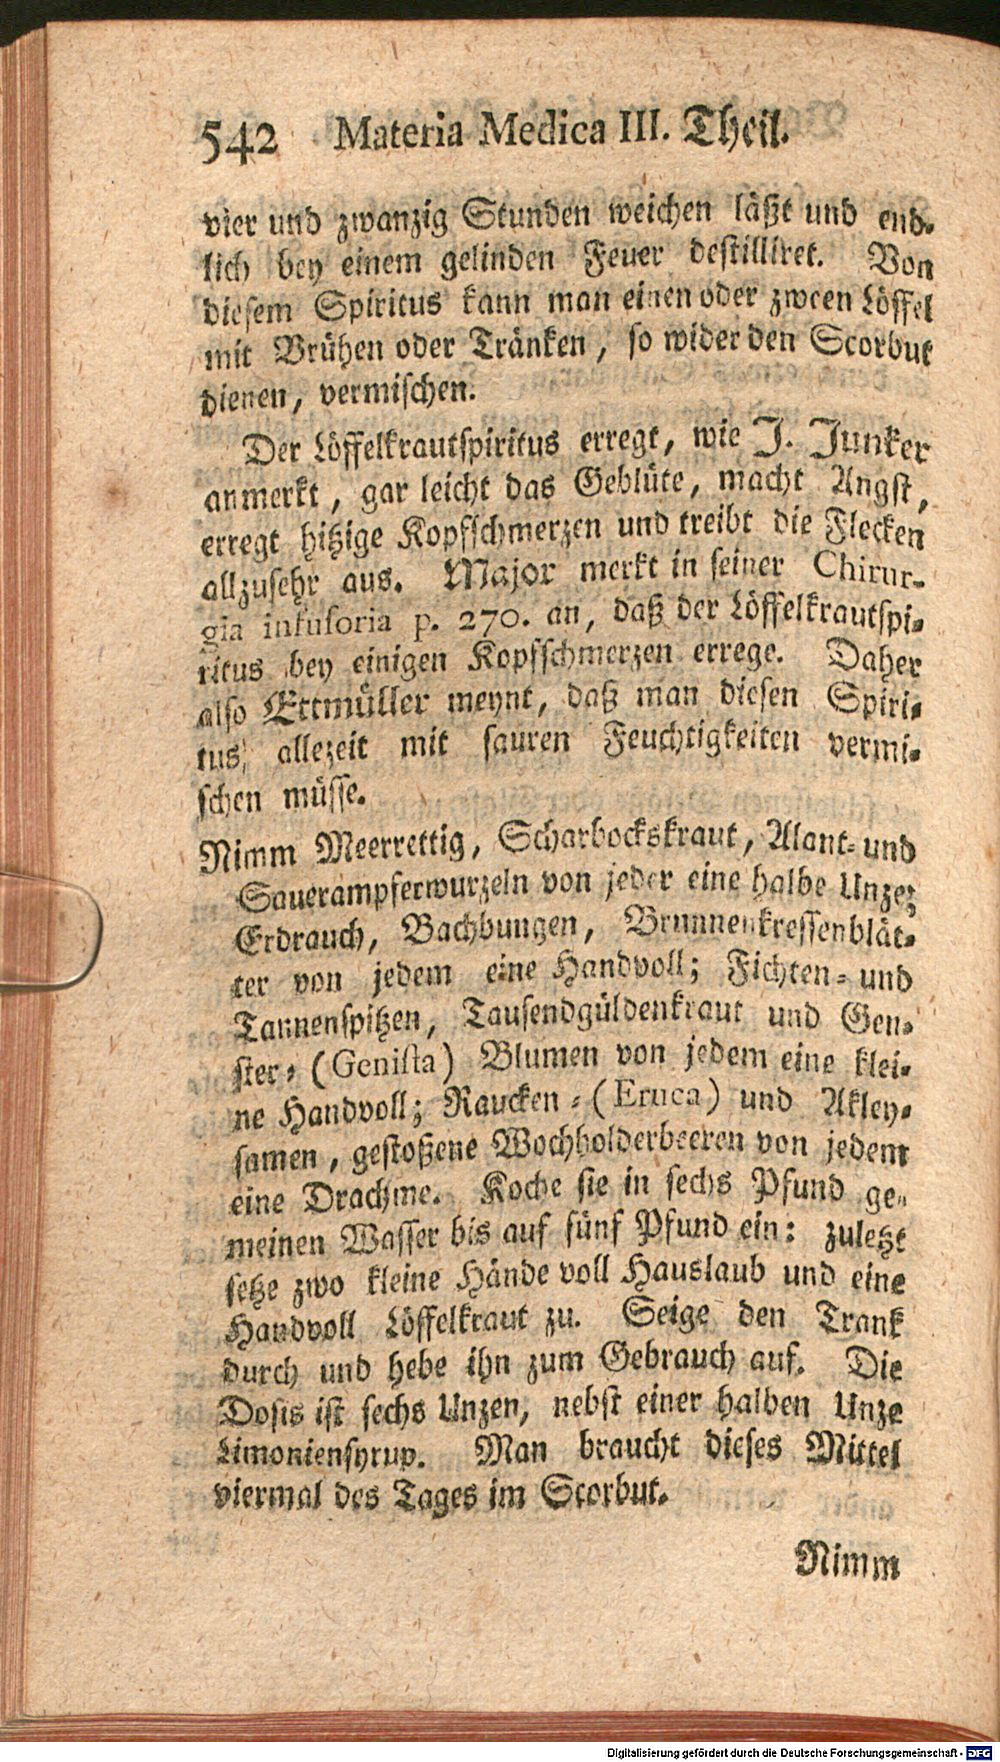 542 Materia Medica III. Theil.
vier und zwanzig Stunden weichen läßt und end-
lich bey einem gelinden Feuer destilliret. Von
diesem Spiritus kann man einen oder zween Löffel
mit Brühen oder Tränken, so wider den Scorbut
dienen, vermischen.
Der Löffelkrautspiritus erregt, wie J. Junker
anmerkt, gar leicht das Geblüte, macht Angst,
erregt hitzige Kopfschmerzen und treibt die Flecken
allzusehr aus. Major merkt in seiner Chirur-
gia infusoria p. 270. an, daß der Löffelkrautspi-
ritus bey einigen Kopfschmerzen errege. Daher
also Ettmüller meynt, daß man diesen Spiri-
tus allezeit mit sauren Feuchtigkeiten vermi-
schen müsse.
Nimm Meerrettig, Scharbockskraut, Alant- und
Sauerampferwurzeln von jeder eine halbe Unze;
Erdrauch, Bachbungen, Brunnenkressenblät-
ter von jedem eine Handvoll; Fichten- und
Tannenspitzen, Tausendgüldenkraut und Gen-
ster- (Genista) Blumen von jedem eine klei-
ne Handvoll; Raucken- (Eruca) und Akley-
samen, gestoßene Wochholderbeeren von jedem
eine Drachme. Koche sie in sechs Pfund ge-
meinen Wasser bis auf fünf Pfund ein: zuletzt
setze zwo kleine Hände voll Hauslaub und eine
Handvoll Löffelkraut zu. Seige den Trank
durch und hebe ihn zum Gebrauch auf. Die
Dosis ist sechs Unzen, nebst einer halben Unze
Limoniensyrup. Man braucht dieses Mittel
viermal des Tages im Scorbut.
Nimm
Digitalisierung gefördert durch die Deutsche Forschungsgemeinschaft - DFG